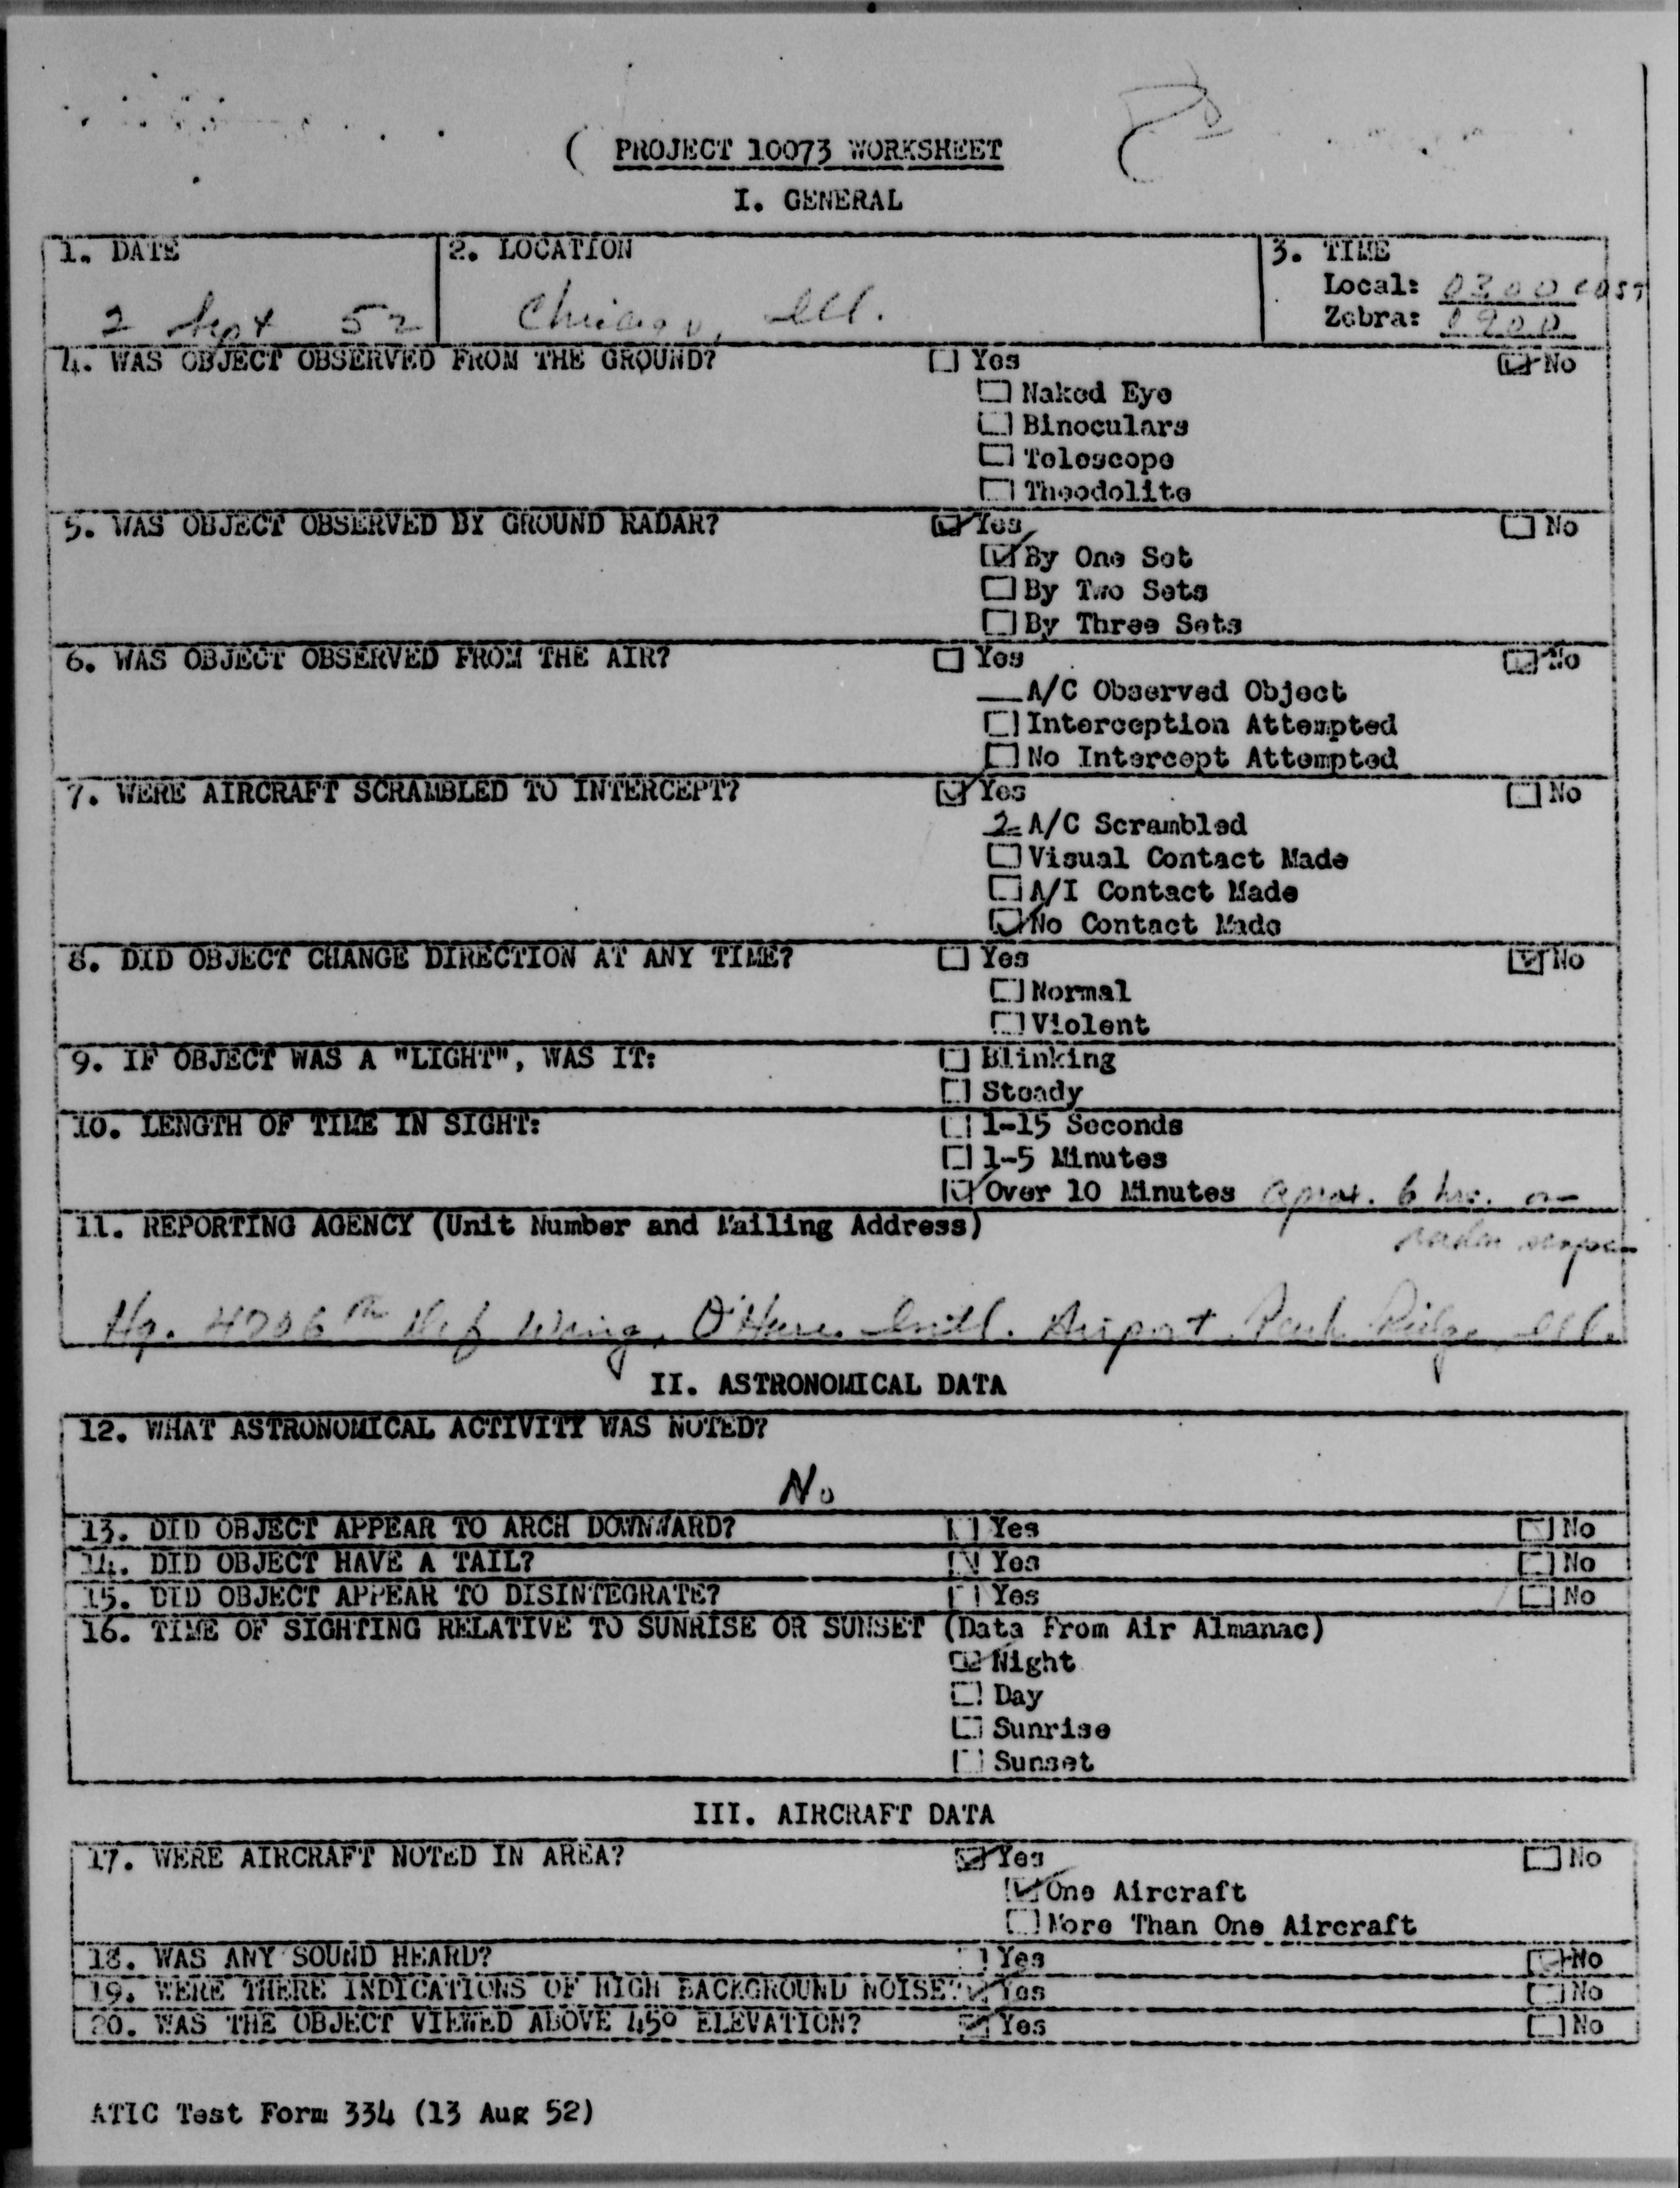 PROJECT 10073 WORKSHEET
I. GENERAL
1. DATE
2. LOCATION
3. TIME
Local: 0300
Zebra: 0900
2 Sept 52
Chicago, Ill.
4. WAS OBJECT OBSERVED FROM THE GROUND? Yes No
Naked Eye
Binoculars
Telescope
Theodolite
5. WAS OBJECT OBSERVED BY GROUND RADAR? Yes No
By One Set
By Two Sets
By Three Sets
6. WAS OBJECT OBSERVED FROM THE AIR? Yes No
A/C Observed Object
Interception Attempted
No Intercept Attempted
7. WERE AIRCRAFT SCRAMBLED TO INTERCEPT? Yes No
2 A/C Scrambled
Visual Contact Made
A/I Contact Made
No Contact Made
8. DID OBJECT CHANGE DIRECTION AT ANY TIME? Yes No
Normal
Violent
9. IF OBJECT WAS A "LIGHT", WAS IT: Blinking
Steady
10. LENGTH OF TIME IN SIGHT: 1-15 Seconds
1-5 Minutes
Over 10 Minutes aprox. 6 hrs. on
radar scope
11. REPORTING AGENCY (Unit Number and Mailing Address)
Hq. 4706th Def Wing, O'Hare Intl. Airport Park Ridge Ill.
II. ASTRONOMICAL DATA
12. WHAT ASTRONOMICAL ACTIVITY WAS NOTED?
No
13. DID OBJECT APPEAR TO ARCH DOWNWARD? Yes No
14. DID OBJECT HAVE A TAIL? Yes No
15. DID OBJECT APPEAR TO DISINTEGRATE? Yes No
16. TIME OF SIGHTING RELATIVE TO SUNRISE OR SUNSET (Data From Air Almanac)
Night
Day
Sunrise
Sunset
III. AIRCRAFT DATA
17. WERE AIRCRAFT NOTED IN AREA? Yes No
One Aircraft
More Than One Aircraft
18. WAS ANY SOUND HEARD? Yes No
19. WERE THERE INDICATIONS OF HIGH BACKGROUND NOISE? Yes No
20. WAS THE OBJECT VIEWED ABOVE 45° ELEVATION? Yes No
ATIC Test Form 334 (13 Aug 52)